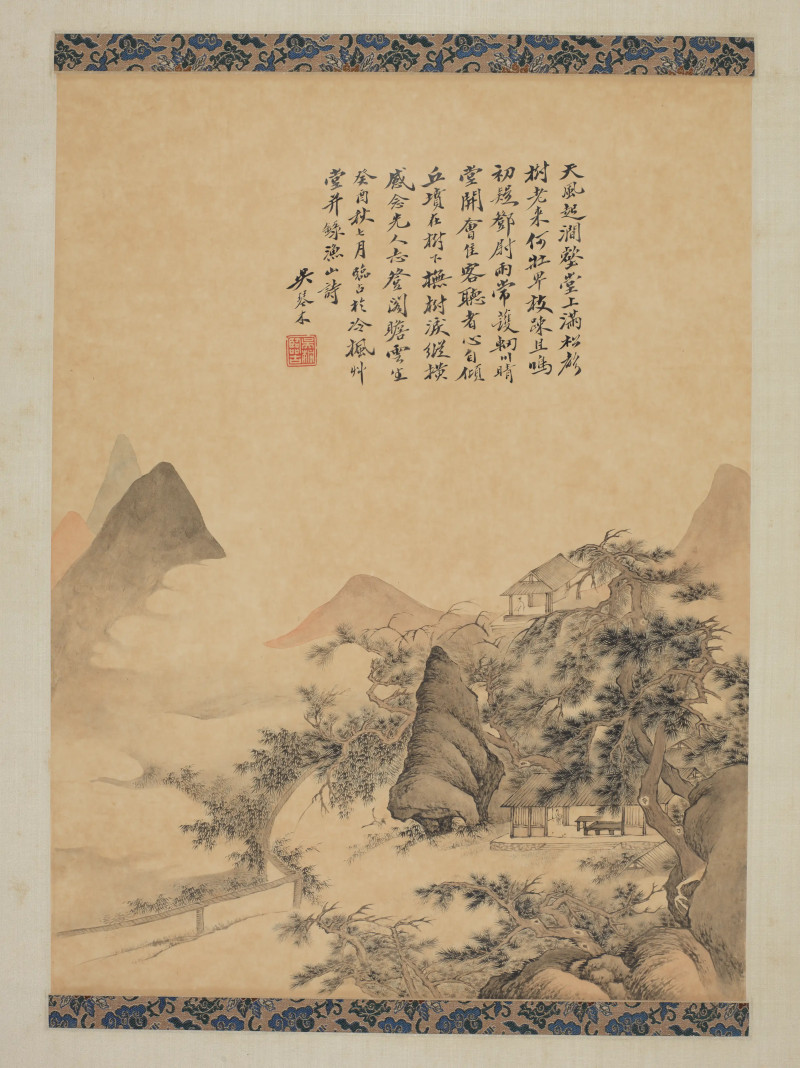 天風起澗壑堂上滿松聲
樹老來何壯卑枝疎且鳴
初疑鄧尉雨常護輞川晴
堂開會佳客聽者心自傾
丘壠在樹下撫樹淚縱橫
感念先人志登閣瞻雲生
癸酉秋七月臨占於冷楓艸
堂并錄漁山詩
吳琴木